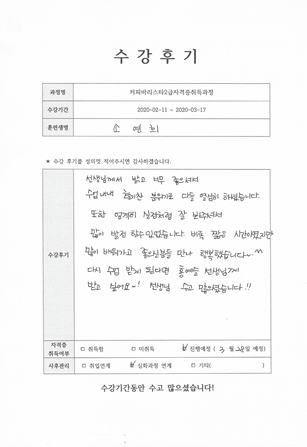 수강후기
과정명 커피바리스타2급자격증취득과정
수강기간 2020-02-11 ~ 2020-03-17
훈련생명 소연희
* 수강 후기를 성의껏 적어주시면 감사하겠습니다.
수강후기
선생님께서 밝고 너무 좋으셔서
수업내내 분위기로 다들 열심히 하였습니다.
또한 실전처럼 잘 보여주셔서
많이 발전 할수있었습니다. 비록 짧은 시간이었지만
많이 배워가고 좋으신분들 만나 행복했습니다~^^
다시 수업 받게 된다면 선생님께
받고 싶어요~! 선생님 수고 많으셨습니다!!
자격증 취득여부 □ 취득함 □ 미취득 ☑ 진행예정 ( 3 월 28일 예정)
사후관리 □ 취업연계 ☑ 심화과정 연계 □ 기타( )
수강기간동안 수고 많으셨습니다!